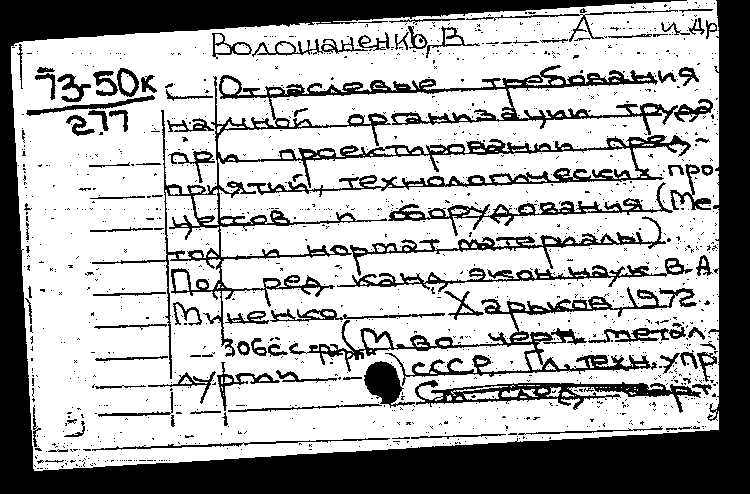 Волошаненко, В А и др
73-50к Отраслевые требования
277
научной организации труда
при проектировании пред-
приятий, технологических про-
цессов и оборудования (Ме-
тод и нормат материалы).
Под ред канд экон наук В.А.
Миненко. Харьков, 1972.
306с с граф (М-во черн метал-
лургии СССР. Гл. техн. упр
См. след карт